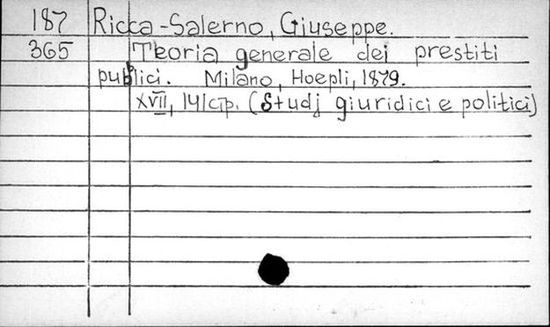 187 Ricca-Salerno, Giuseppe.
365 Teoria generale dei prestiti
publici. Milano, Hoepli, 1879.
XVII, 141 c. p. (Studj giuridici e politici)